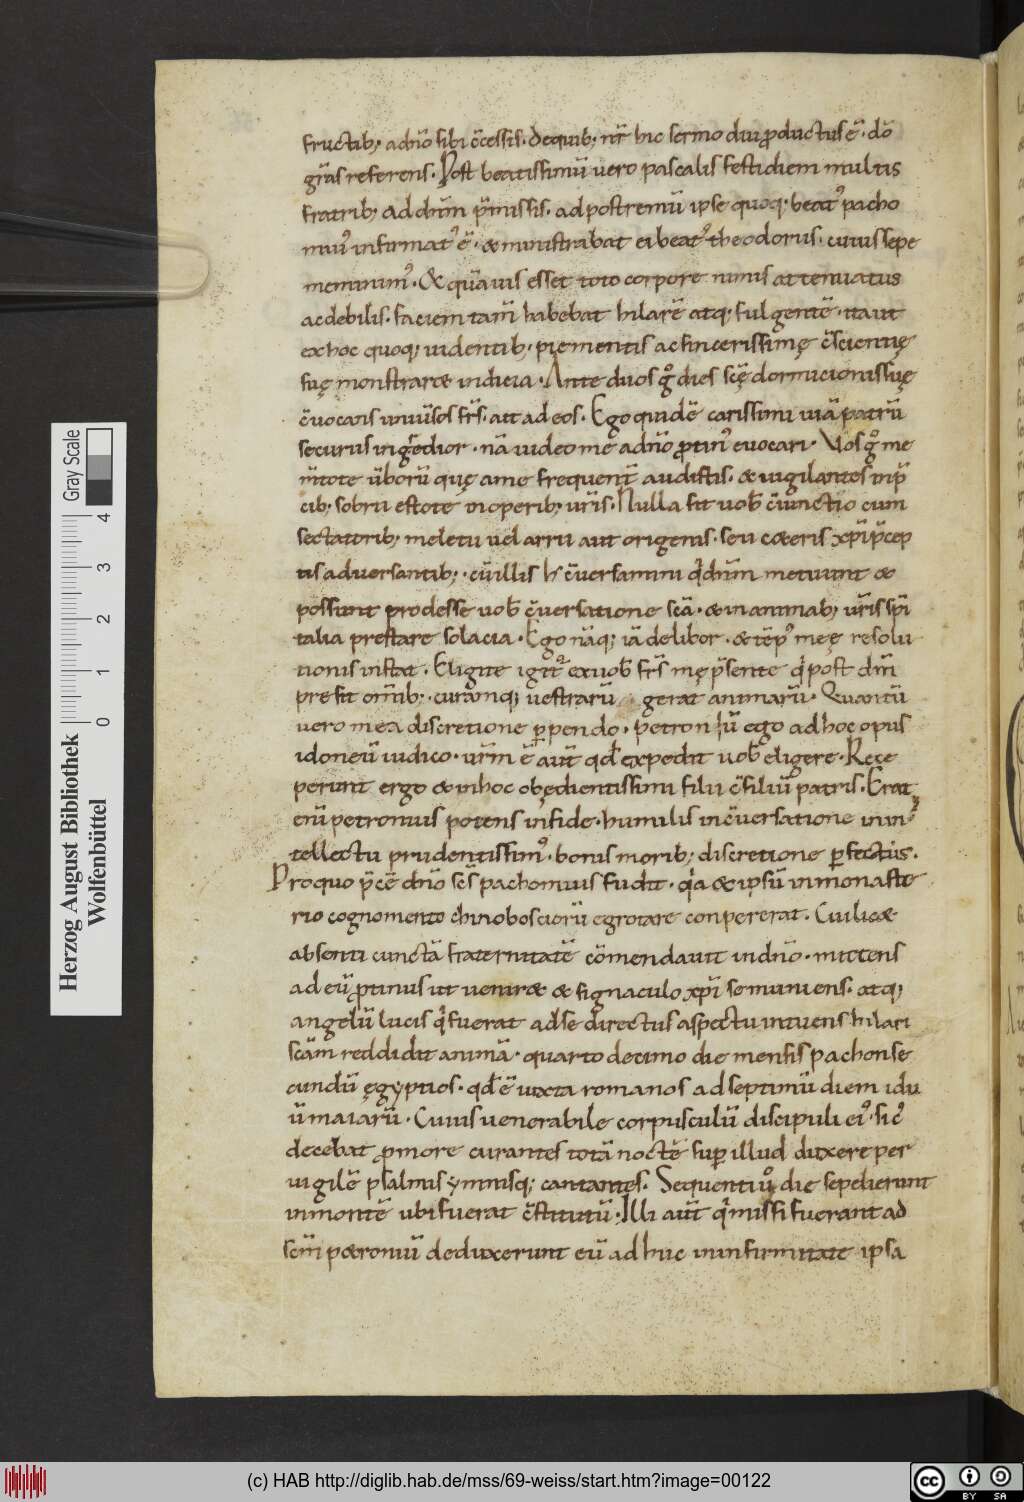 fructib; adnō sibi c̄cessis. dequib; nr̄ hic sermo diu ꝓductus ē. dō
gr̄as referens. Post beatissimū uero pascalis festi diem multis
fratrib; ad dnm̄ p̄missis. ad postremū ipse quoq; beat' pacho
mius infirmat' ē. & ministrabat ei beat' theodorus. cuius sepe
meminim'. & quāuis esset toto corpore nimis attenuatus
ac debilis. faciem tam̄ habebat hilarē atq; fulgentē. ita ut
ex hoc quoq; uidentib; pię mentis ac sincerissimę c̄scientię
suę monstraret indicia. Ante duos g̊ dies scę̄ dormicionis suę
c̄uocans uniūsos fr̄s. ait ad eos. Ego quidē carissimi uiā patrū
securus ingredior. nā uideo me adnō ꝓtin' euocari. Uos g̊ me
m̄tote ūborū quę a me frequent̄ audistis. & uigilantes in p̄
cib; sobrii estote in operib; ur̄is. Nulla sit uob̄ c̄iunctio cum
sectatorib; meletii uel arrii aut origenis. seu c&eris xp̄i p̄cep
tis aduersantib;. cū illis h̄ c̄uersamini q̇ dnm̄ metuunt &
possunt prodesse uob̄ c̄uersatione scā. & in animab; ur̄is sp̄i
talia prestare solacia. Ego nāq; iā delibor. & tēp' meę resolu
tionis instat. Eligite igit' ex uob̄ fr̄s mę p̄sente q̇ post dm̄
pre sit omīb;. curamq; uestrarū gerat animarū. Quantū
uero mea discretione perpendo. petroniū ego ad hoc opus
idoneū iudico. ur̄m ē aut̄ qd̄ expedit uob̄ eligere. Rece
perunt ergo & in hoc obędientissimi filii c̄siliū patris. Erat
enī petronius potens in fide. humilis in c̄uersatione in in
tellectu prudentissim'. bonis morib; discretione ꝑfectus.
Pro quo p̄cē dnō scs̄ pachomius fudit. q̇a & ipsū in monaste
rio cognomento chinobosciorū egrotare conpererat. Cui lic&
absenti cunctā fraternitatē cōmendauit in dnō. mittens
ad eū ꝓtinus ut uenir& & signaculo xp̄i se muniens. atq;
angelū lucis q̇ fuerat ad se directus aspectu intuens hilari
scām reddidit animā. quarto decimo die mensis pachon se
cundū ęgyptios. qd̄ ē iuxta romanos ad septimū diem idu
ū maiarū. Cuius uenerabile corpusculū discipuli ei' sic'
decebat ꝓ more curantes totā noctē sup̄ illud duxere per
uigilē psalmis ymnisq; cantantes. Sequenti ů die sepelierunt
in montē ubi fuerat c̄stitutū. Illi aut̄ q̇ missi fuerant ad
scm̄ p&roniū deduxerunt eū adhuc in infirmitate ipsa
Herzog August Bibliothek
Wolfenbüttel
Gray Scale
0 1 2 3 4
(c) HAB http://diglib.hab.de/mss/69-weiss/start.htm?image=00122
cc BY SA